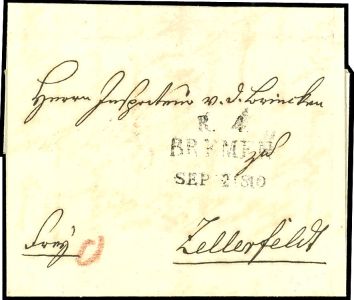 Herrn Inspecteur v. d. Brincken
R. 4.
BREMEN
zu
SEP 2 1810
Frey
Zellerfeldt